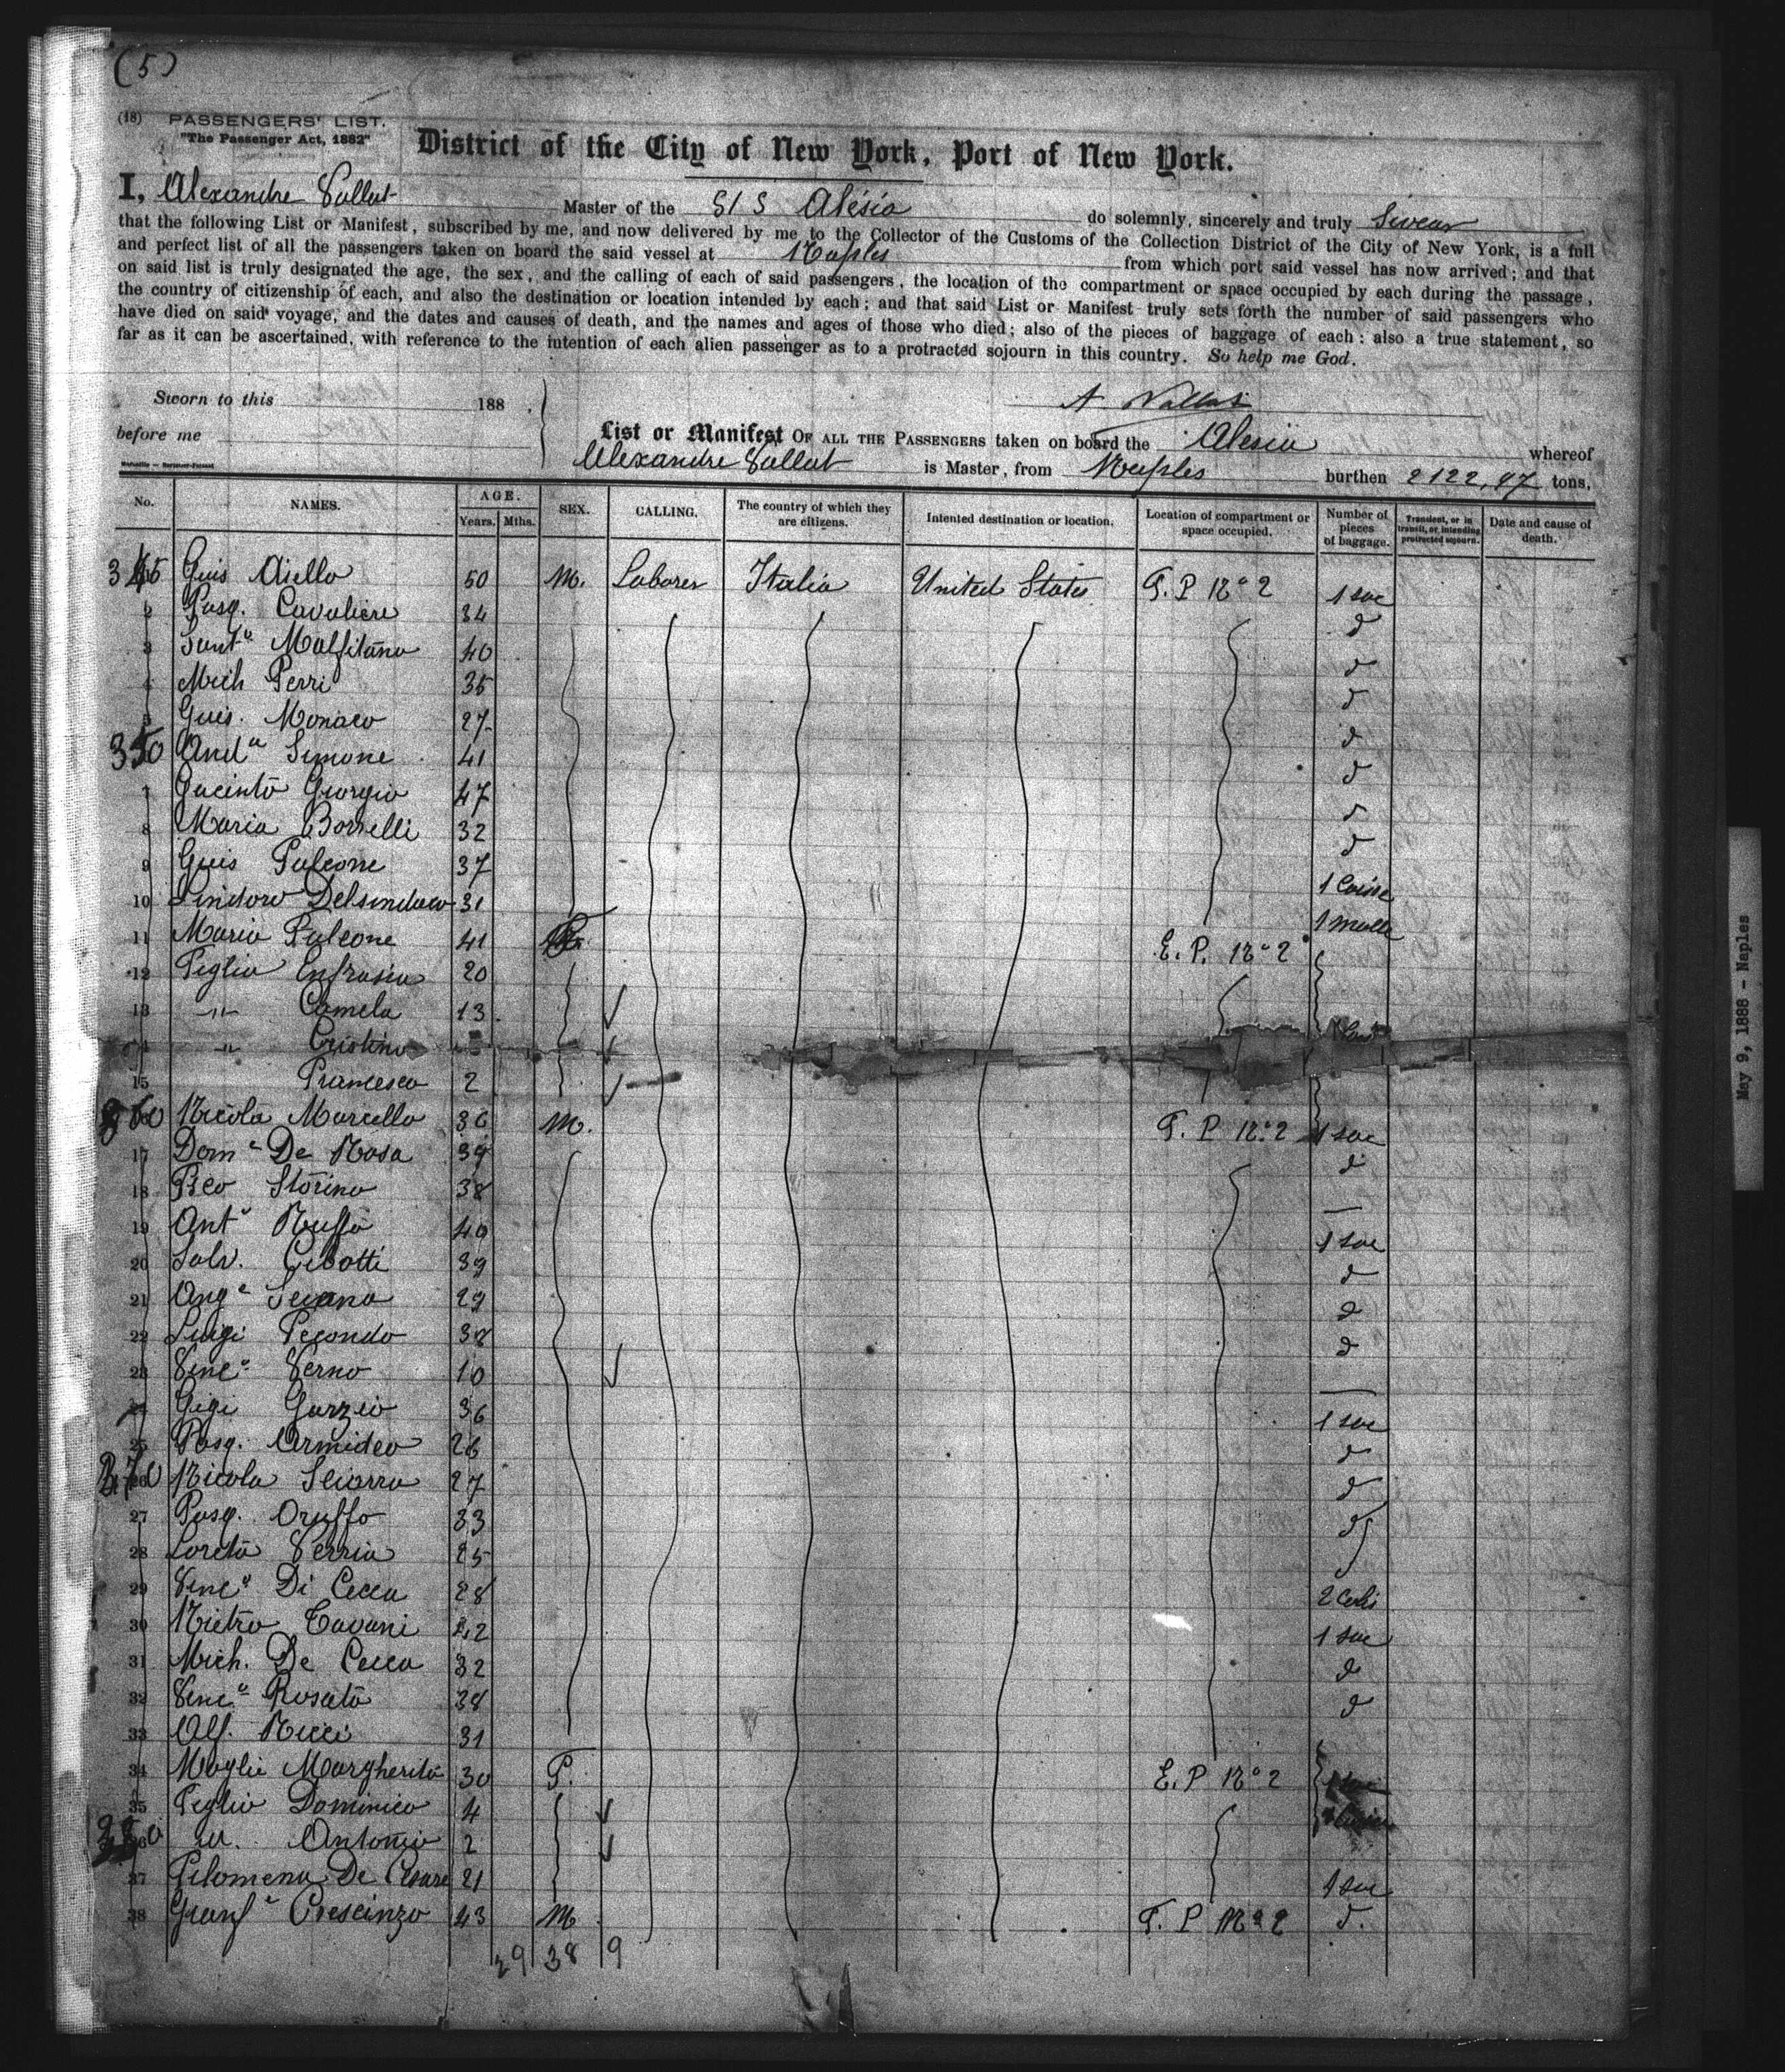 (5)
(18) PASSENGERS' LIST.
"The Passenger Act, 1882"
District of the City of New York, Port of New York.
I, Alexandre Vallat Master of the S/S Alésia do solemnly, sincerely and truly Swear
that the following List or Manifest, subscribed by me, and now delivered by me to the Collector of the Customs of the Collection District of the City of New York, is a full
and perfect list of all the passengers taken on board the said vessel at Naples from which port said vessel has now arrived; and that
on said list is truly designated the age, the sex, and the calling of each of said passengers, the location of the compartment or space occupied by each during the passage,
the country of citizenship of each, and also the destination or location intended by each; and that said List or Manifest truly sets forth the number of said passengers who
have died on said voyage, and the dates and causes of death, and the names and ages of those who died; also of the pieces of baggage of each: also a true statement, so
far as it can be ascertained, with reference to the intention of each alien passenger as to a protracted sojourn in this country. So help me God.
Sworn to this 188 .
A Vallat
before me
List or Manifest OF ALL THE PASSENGERS taken on board the Alesia whereof
Alexandre Vallat is Master, from Naples burthen 2122,97 tons,
No. NAMES. AGE. Years. Mths. SEX. CALLING. The country of which they are citizens. Intented destination or location. Location of compartment or space occupied. Number of pieces of baggage. Transient, or in transit, or intending protracted sojourn. Date and cause of death.
345 Guis Aiello 50 M. Laborer Italia United States T. P No 2 1 sac
2 Pasq. Cavaliere 34 d
3 Sant° Malfitano 40 d
4 Mich Perri 35 d
5 Guis. Monaco 27 d
350 And° Simone 41 d
7 Giacinto Giorgio 47 d
8 Maria Borrelli 32 d
9 Guis Falcone 37 1 Caisse
10 31 1 malle
11 Maria Falcone 41 F. E. P. No 2
12 Figlia Enfrasia 20
13 -"- Camela 13
14 " Cristina
15 Francesco 2
360 Nicola Marcello 36 M. T. P No 2 1 sac
17 Dom° De Rosa 39 d
18 Storino 38 —
19 Ant° Ruffo 40 1 sac
20 Salv. Cibotti 39 d
21 Ang° Sciana 29 d
22 Luigi Secondo 38 d
23 Vinc° Verno 10 —
24 Gigi Garzio 36 1 sac
25 Pasq. Armideo 26 d
370 Nicola Sciarra 27 d
27 Pasq. Oruffo 33 d
28 Loreto Verria 25
29 Vinc° Di Cecca 28 2 Colis
30 Pietro Cavani 22 1 sac
31 Mich. De Cecca 32 d
32 Vinc° Rosato 38 d
33 Alf. Ricci 31
34 Moglie Margherita 30 F. E. P No 2
35 Figlio Dominico 4
380 Antonio 2
37 Filomena De Cesare 21 1 sac
38 Crescinzo 43 M T. P No 2 d.
29 38 9
May 9, 1888 - Naples